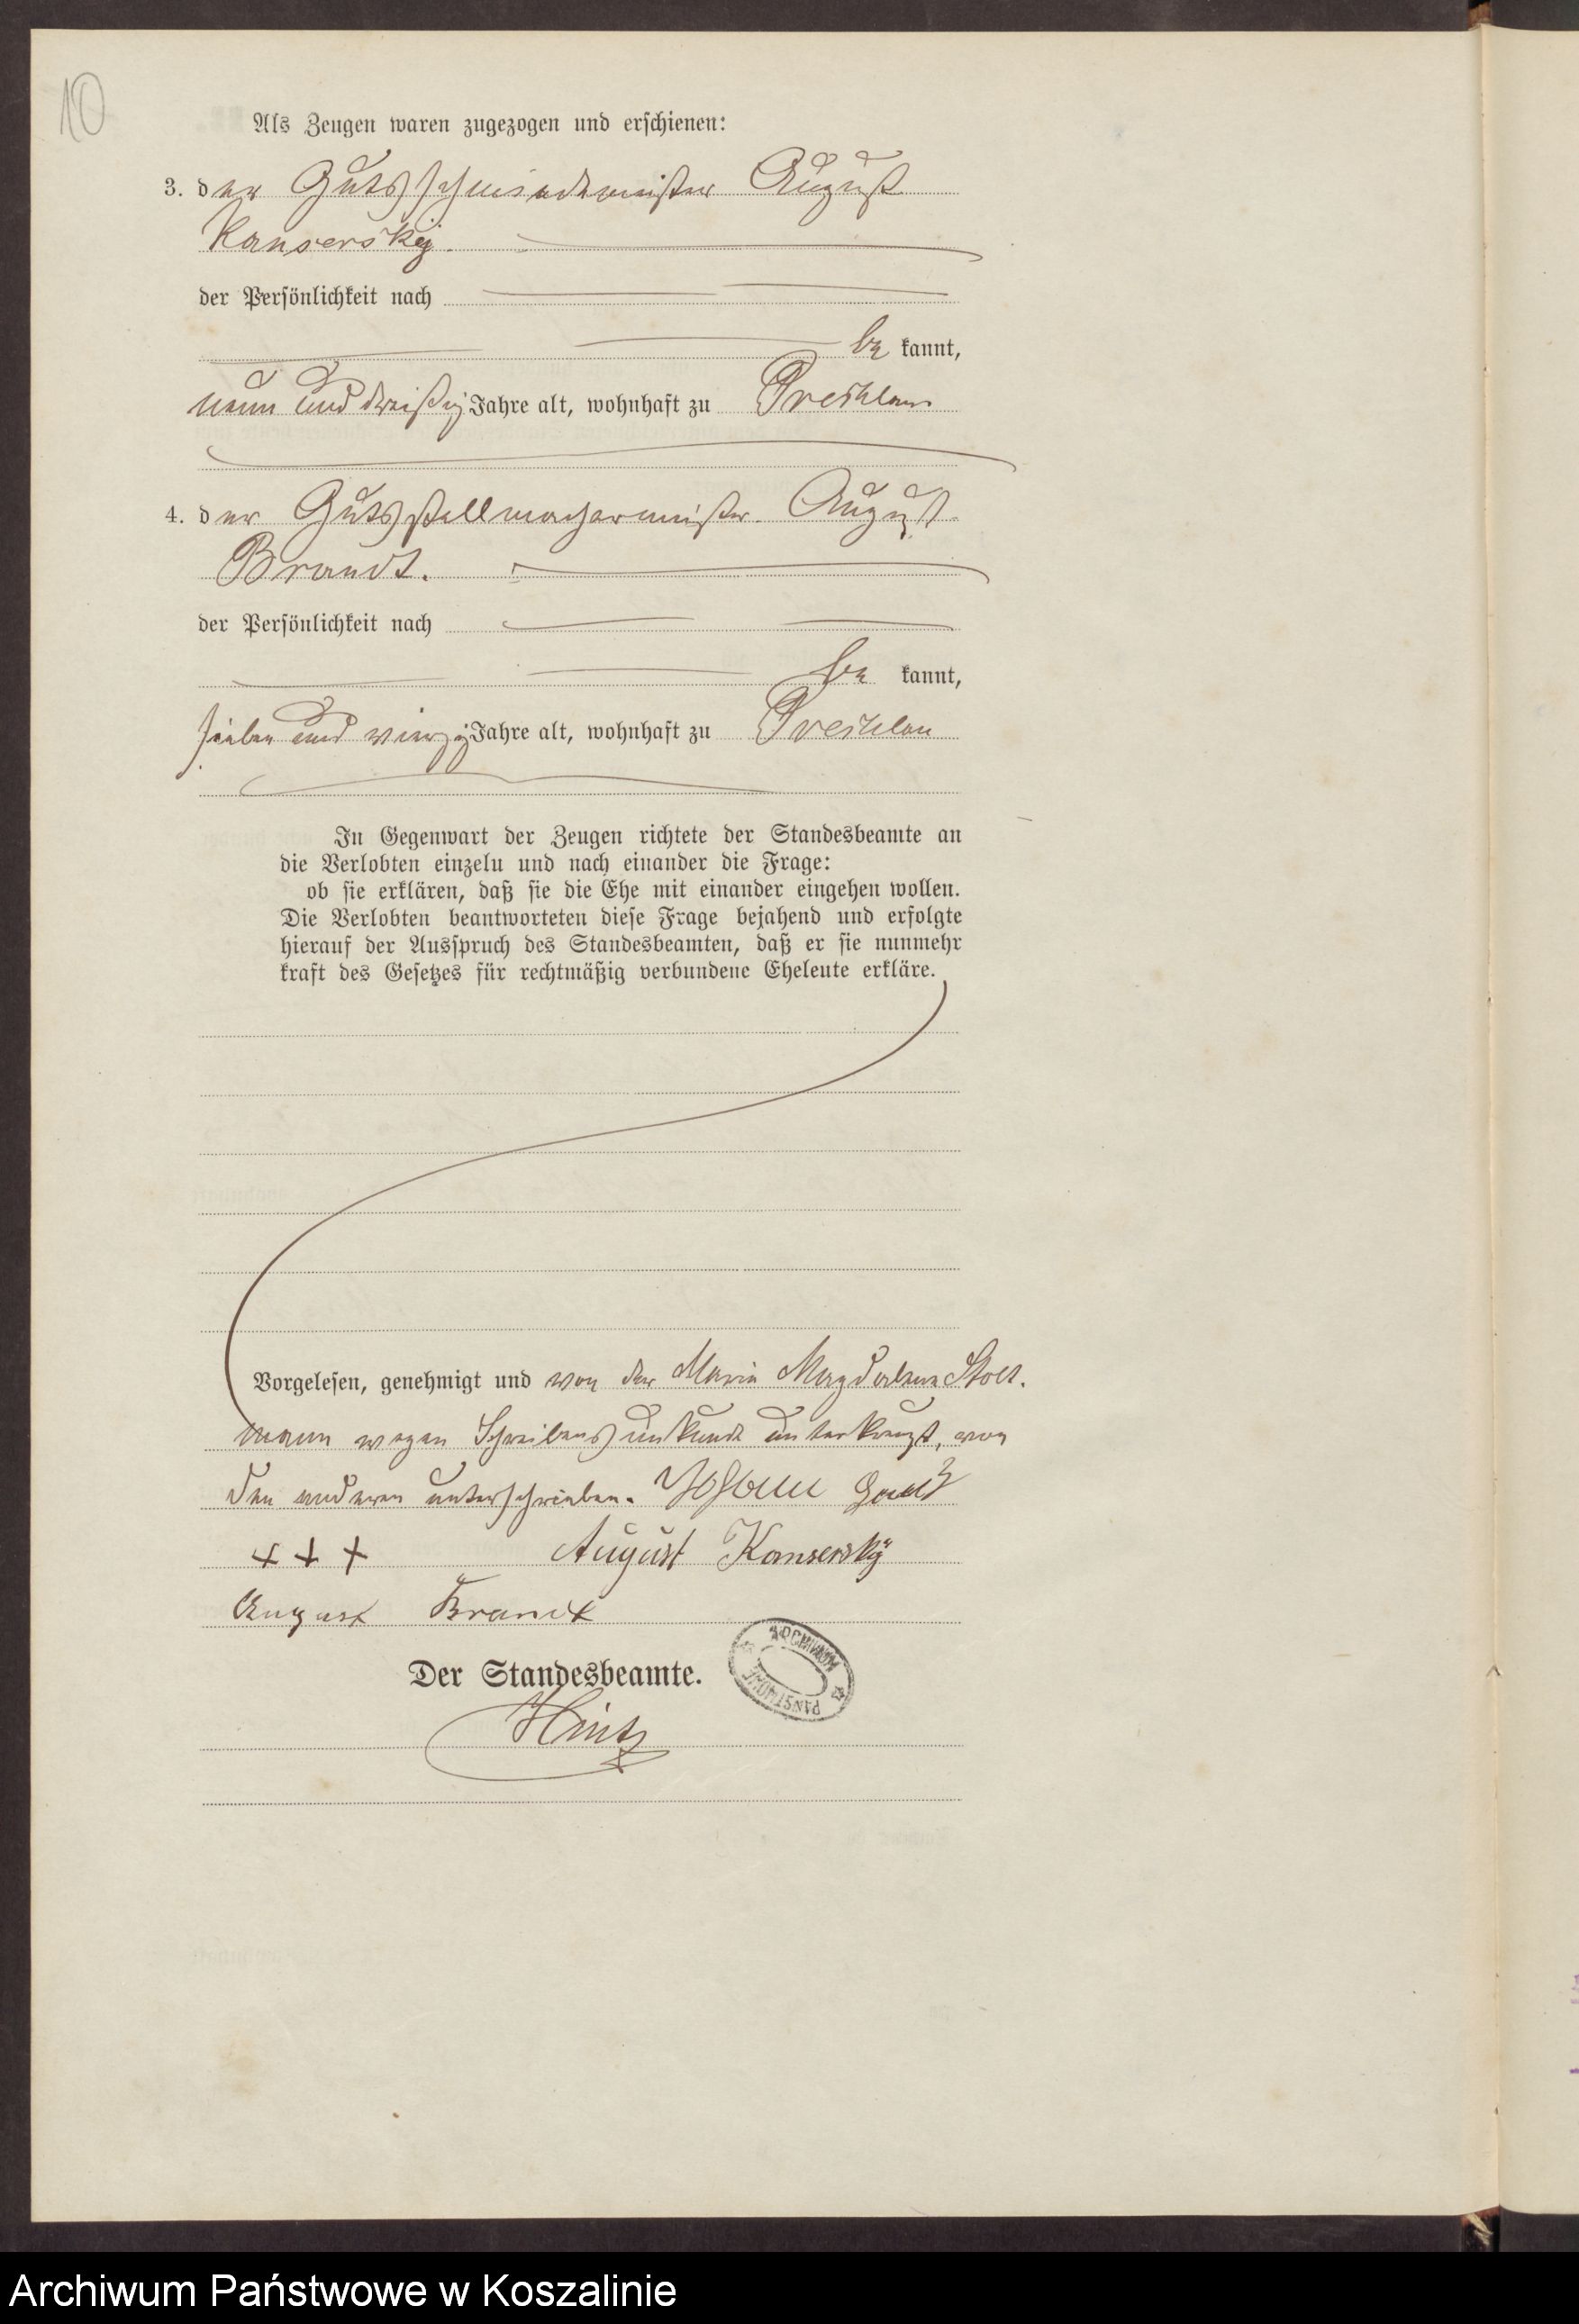 10
Als Zeugen waren zugezogen und erschienen:
3. der Gutsschmiedemeister August
Kanserskÿ.
der Persönlichkeit nach
be kannt,
neun und dreißig Jahre alt, wohnhaft zu Prechlau
4. der Gutsstellmachermeister August
Brandt.
der Persönlichkeit nach
be kannt,
sieben und vierzig Jahre alt, wohnhaft zu Prechlau
In Gegenwart der Zeugen richtete der Standesbeamte an
die Verlobten einzeln und nach einander die Frage:
ob sie erklären, daß sie die Ehe mit einander eingehen wollen.
Die Verlobten beantworteten diese Frage bejahend und erfolgte
hierauf der Ausspruch des Standesbeamten, daß er sie nunmehr
kraft des Gesetzes für rechtmäßig verbundene Eheleute erkläre.
Vorgelesen, genehmigt und von der Maria Magdalena Stolt-
mann wegen Schreibensunkunde unterkreuzt, von
den anderen unterschrieben. Johann
+ + + August Kanserskÿ
August Brandt
Der Standesbeamte.
Hintz
ARCHIWUM PAŃSTWOWE
Archiwum Państwowe w Koszalinie